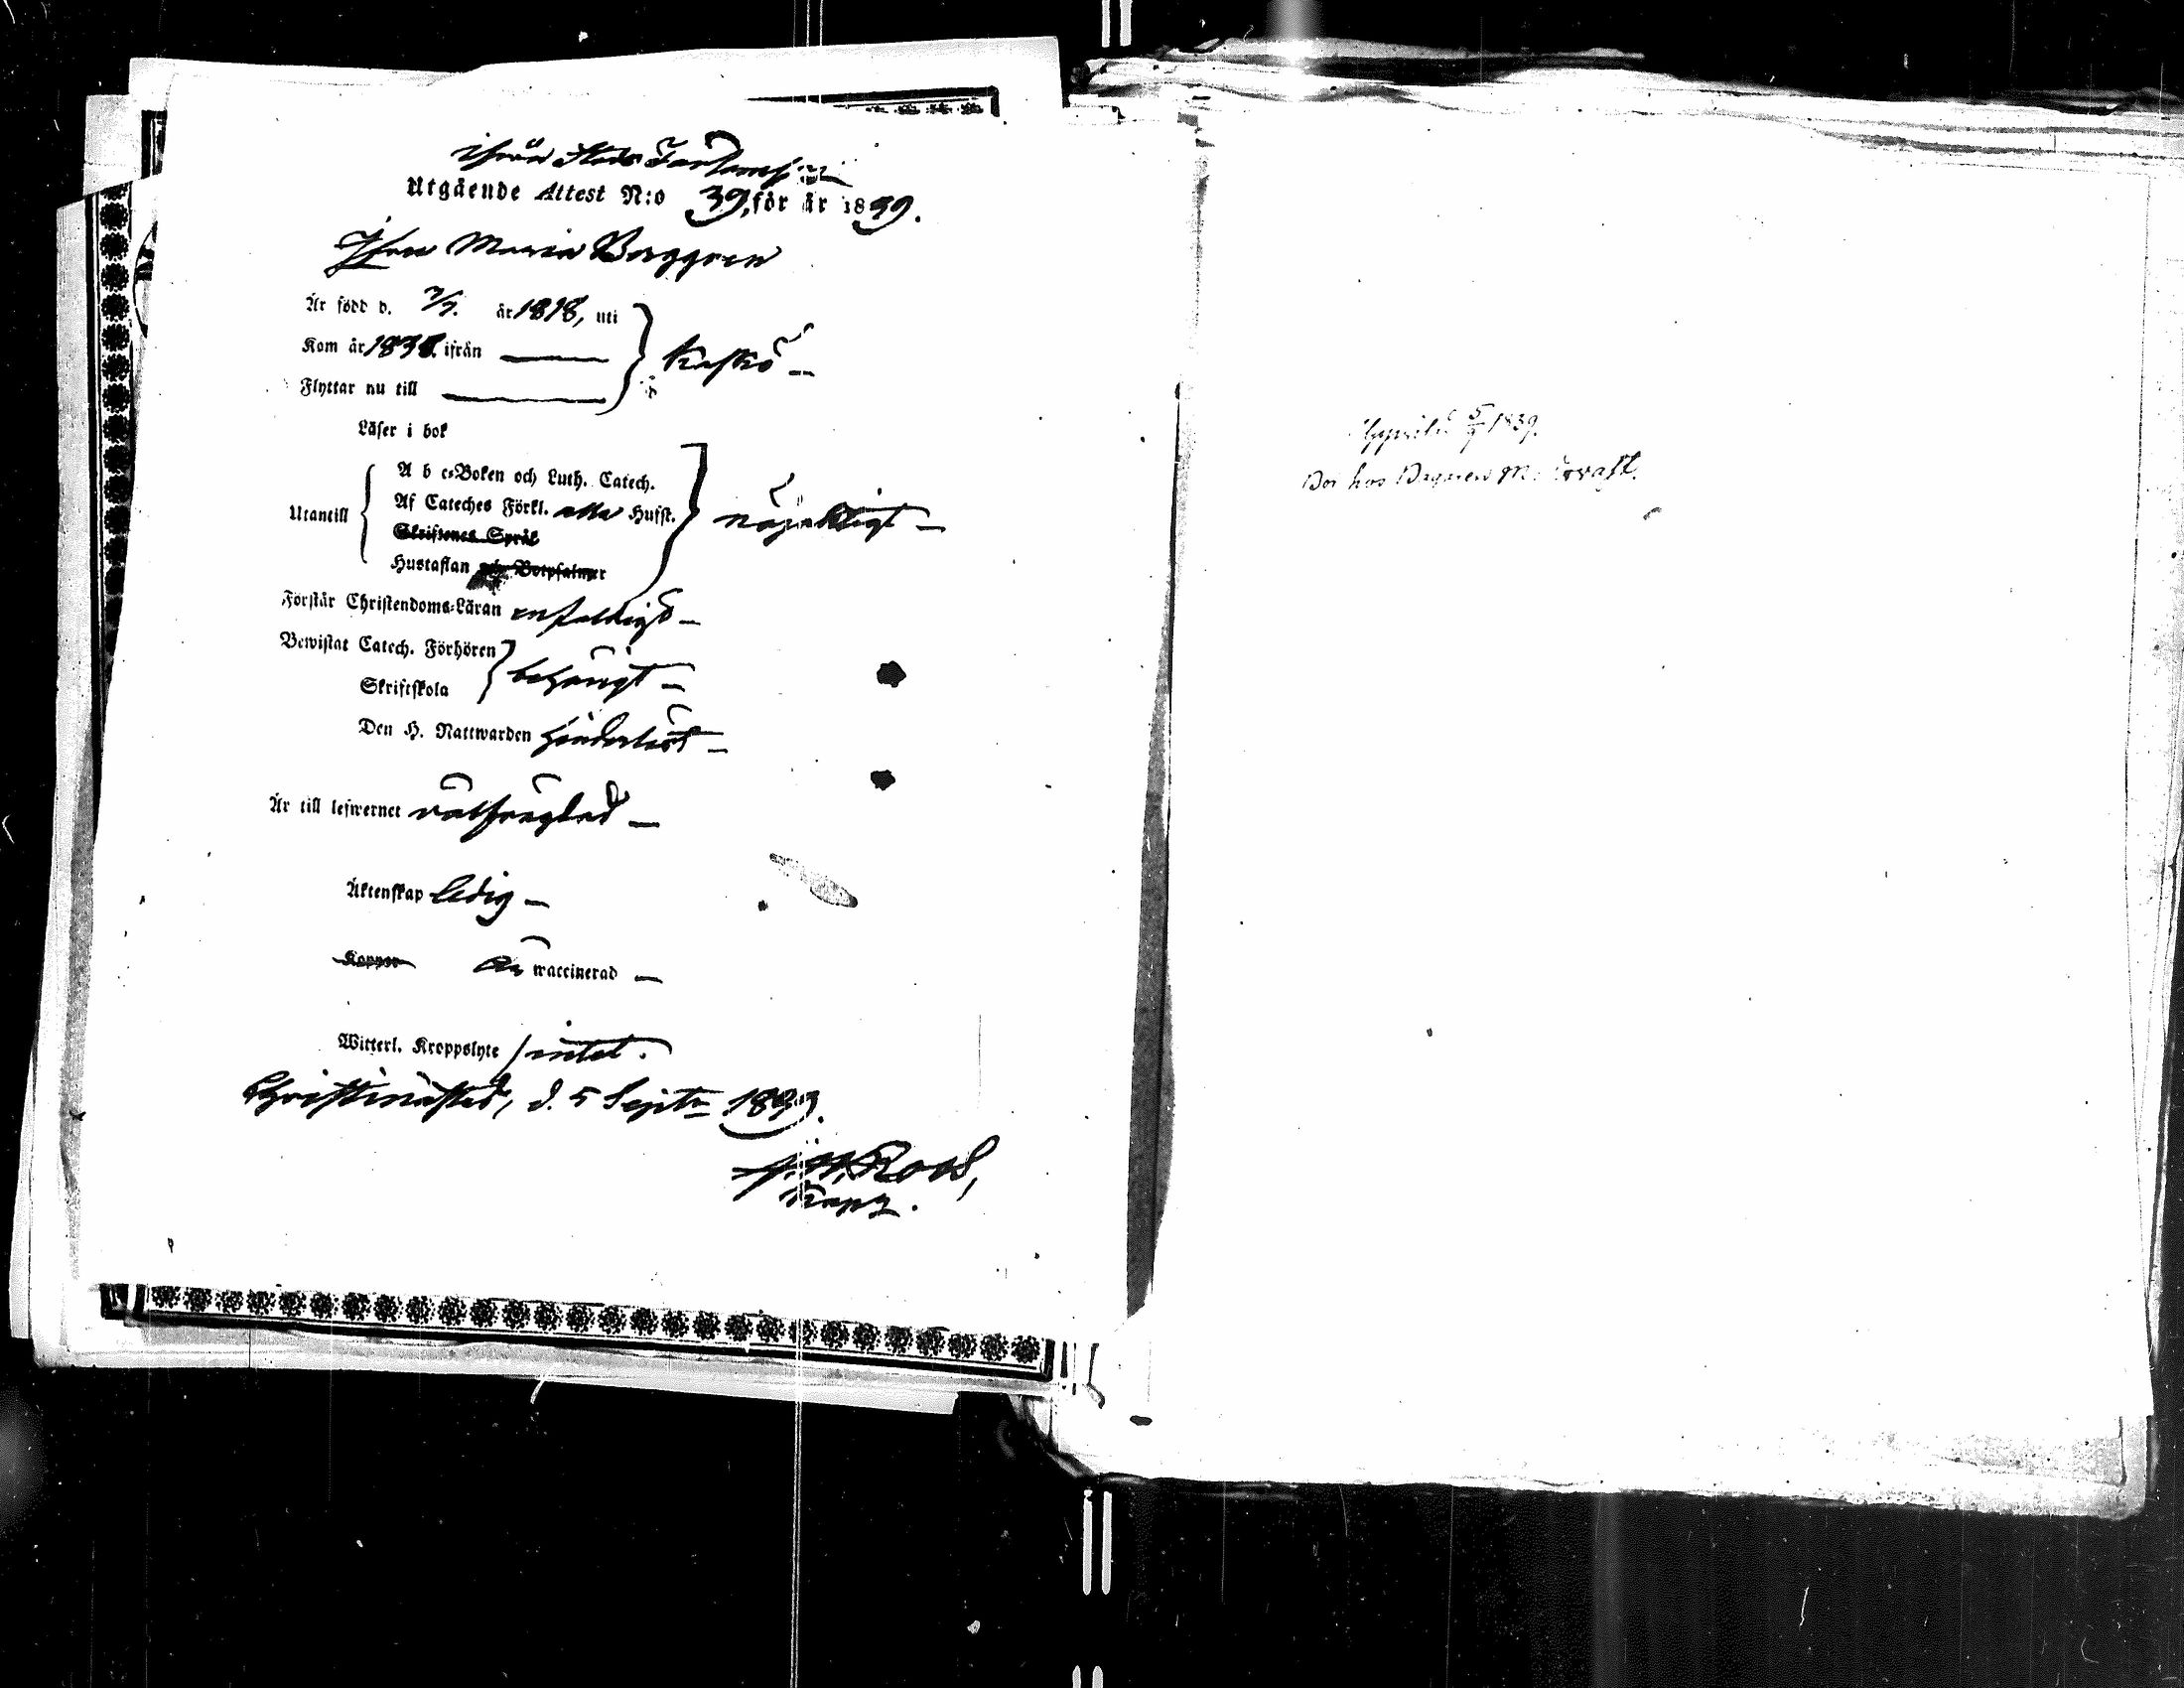 ifrån Stads
Utgående Attest N:o 39, för år 1839.
Maria Berggren
Är född d. 7/7. år 1818, uti
Kom år 1838. ifrån Kaskö
Flyttar nu till
Läser i bok
A b c-Boken och Luth. Catech.
Utantill Af Cateches Förkl. alla Hufst. nöjaktigt
Skriftenes Språk
Hustaflan och Botpsalmer
Förstår Christendoms-Läran enfaldigt
Bewistat Catech. Förhören
Skriftskola behörigt
Den H. Nattwarden hinderlöst
Är till lefwernet välfrägdad
Äktenskap ledig
Koppor är waccinerad
Witterl. Kroppslyte intet.
Christinæstad, d. 5 Septr 1839.
Roos,
5/9 1839.
Bor hos Bagaren